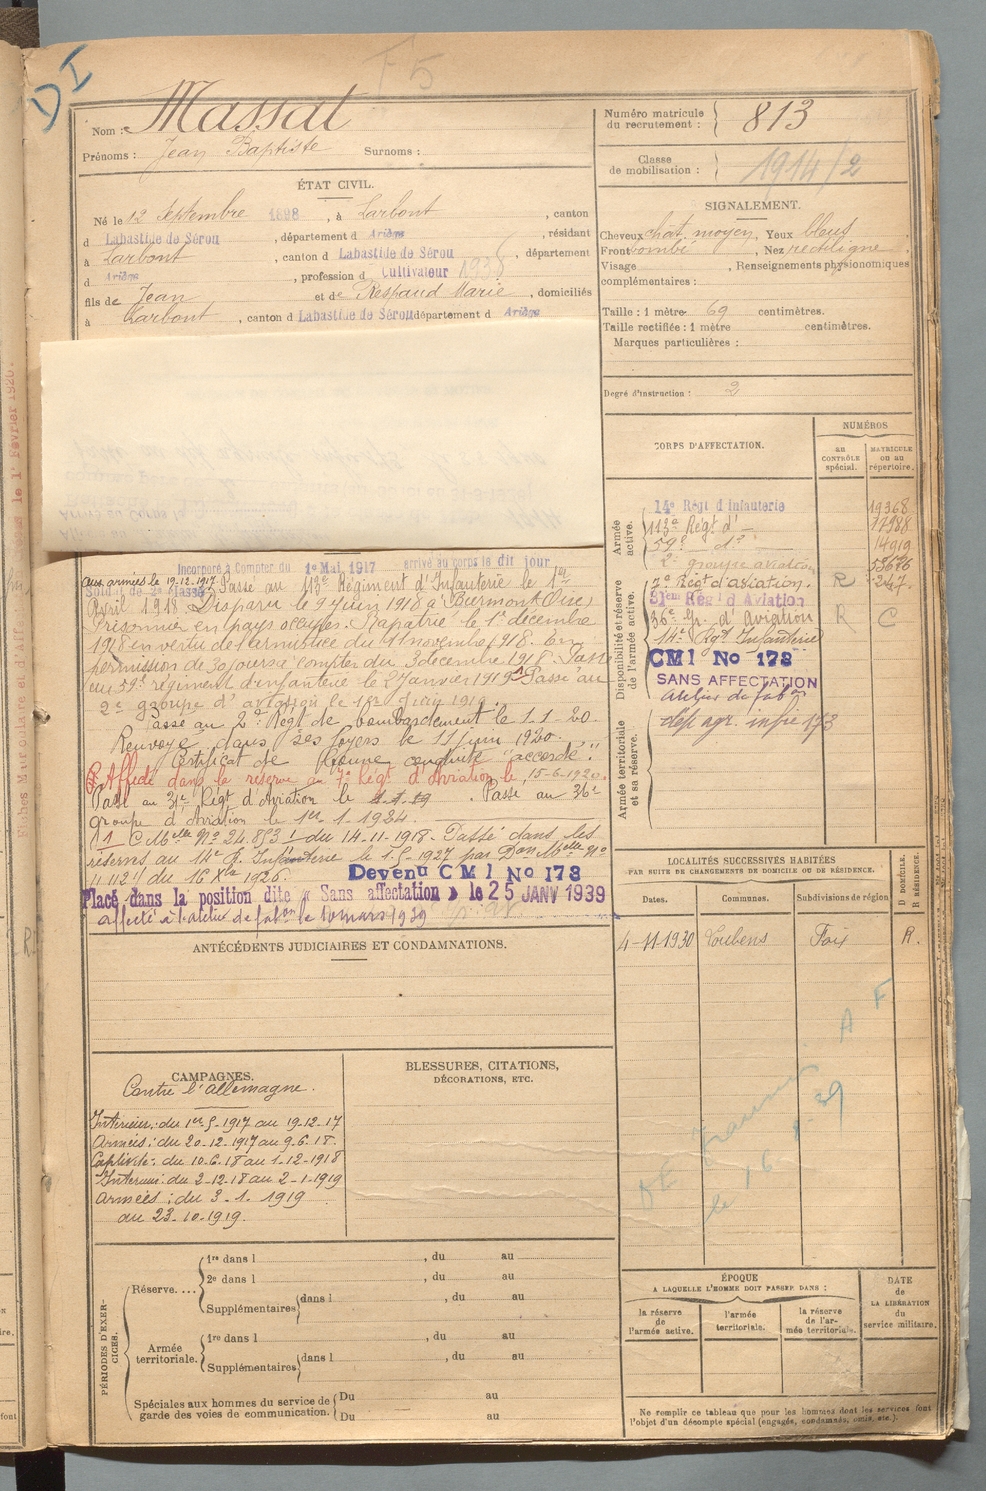 DI
F5
Nom : Massat
Prénoms : Jean Baptiste Surnoms :
ÉTAT CIVIL.
Né le 12 Septembre 1898, à Larbont, canton
d Labastide de Sérou, département d Ariège, résidant
à Larbont, canton d Labastide de Sérou, département
d Ariège, profession d Cultivateur 1938
fils de Jean et de Respaud Marie, domiciliés
à Larbont, canton d Labastide de Sérou département d Ariège
Numéro matricule
du recrutement : 813
Classe
de mobilisation : 1914/2
SIGNALEMENT.
Cheveux chat. moyen, Yeux bleus
Front bombé, Nez rectiligne
Visage , Renseignements physionomiques
complémentaires :
Taille : 1 mètre 69 centimètres.
Taille rectifiée : 1 mètre centimètres.
Marques particulières :
Degré d'instruction : 2
CORPS D'AFFECTATION.
NUMÉROS
au
CONTRÔLE
spécial.
MATRICULE
ou au
répertoire.
Armée
active.
14e Régt d Infanterie 19368
113e Régt d' — 17988
59e — d° 14919
2e groupe aviation
Disponibilité et réserve
de l'armée active.
7e Régt d'aviation. R 247
31em Rég' d Aviation
36e Gr. d' Aviation R C
14e Rgt Infanterie
CMI No 173
SANS AFFECTATION
Atelier de fabon
Armée territoriale
et sa réserve.
dép agr. infie 173
Incorporé à Compter du 1er Mai 1917 arrivé au corps le dit jour
Soldat de 2e classe
aux armées le 19.12.1917. Passé au 113e Régiment d'Infanterie le 1er
Avril 1918 Disparu le 9 Juin 1918 à Biermont (Oise)
Prisonnier en pays occupés. Rapatrié le 1er décembre
1918 en vertu de l'armistice du 11 novembre 1918. En
permission de 30 jours à compter du 3 décembre 1918. Passé
au 59e régiment d'infanterie le 2 Janvier 1919 1 Passé au
2e groupe d'aviation le 1er Juin 1919.
Passé au 2e Régt de bombardement le 1.1-20.
Renvoyé dans ses foyers le 11 juin 1920.
Certificat de Bonne conduite "accordé".
Affecté dans la réserve au 7e Régt d'Aviation le 15-6-1920.
Passé au 31e Régt d'Aviation le . Passé au 36e
groupe d'Aviation le 1er.1.1924.
1 C. Melle No 24.853 ! du 14-11-1918 - Passé dans les
réserves au 14e R. Infanterie le 1.5-1927 par Don Melle No
du 16 Xbre 1926. Devenu CMI No 173
Placé dans la position dite « Sans affectation » le 25 JANV 1939
affecté à l'atelier de fabon le 10 mars 1939
ANTÉCÉDENTS JUDICIAIRES ET CONDAMNATIONS.
LOCALITÉS SUCCESSIVES HABITÉES
PAR SUITE DE CHANGEMENTS DE DOMICILE OU DE RÉSIDENCE.
Dates. Communes. Subdivisions de région D DOMICILE. R RÉSIDENCE.
4-11-1930 Loubens Foix R.
CAMPAGNES.
Contre l'Allemagne.
Intérieur : du 1er 5-1917 au 19-12-17
Armées : du 20-12-1917 au 9.6.18.
Captivité : du 10.6.18 au 1-12-1918
Intérieur : du 2-12-18 au 2-1-1919
Armées : du 3-1.1919
au 23-10-1919.
BLESSURES, CITATIONS,
DÉCORATIONS, ETC.
PÉRIODES D'EXERCICES.
Réserve....
1re dans l , du au
2e dans l , du au
Supplémentaires dans l , du au
Armée
territoriale.
1re dans l , du au
Supplémentaires dans l , du au
Spéciales aux hommes du service de
garde des voies de communication.
Du au
Du au
ÉPOQUE
A LAQUELLE L'HOMME DOIT PASSER DANS :
la réserve
de
l'armée active.
l'armée
territoriale.
la réserve
de l'ar-
mée territoriale.
DATE
de
LA LIBÉRATION
du
service militaire.
Ne remplir ce tableau que pour les hommes dont les services font
l'objet d'un décompte spécial (engagés, condamnés, omis, etc.).